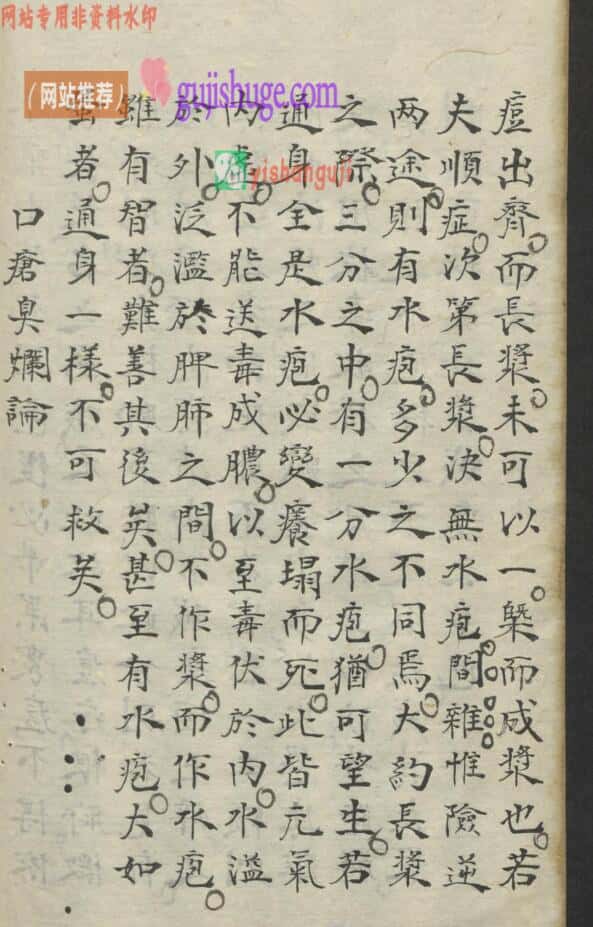 网站专用非资料水印
（网站推荐）
gujishuge.com
痘出齊而長漿未可以一槩而成漿也若
夫順症次第長漿決無水疱間雜惟險逆
两途則有水疱多少之不同焉大約長漿
之際三分之中有一分水疱猶可望生若
通身全是水疱必變癢塌而死此皆元氣
内虛不能送毒成膿以至毒伏於内水溢
於外泛濫於脾肺之間不作漿而作水疱
雖有智者難善其後矣甚至有水疱大如
者通身一樣不可救矣
口瘡臭爛論